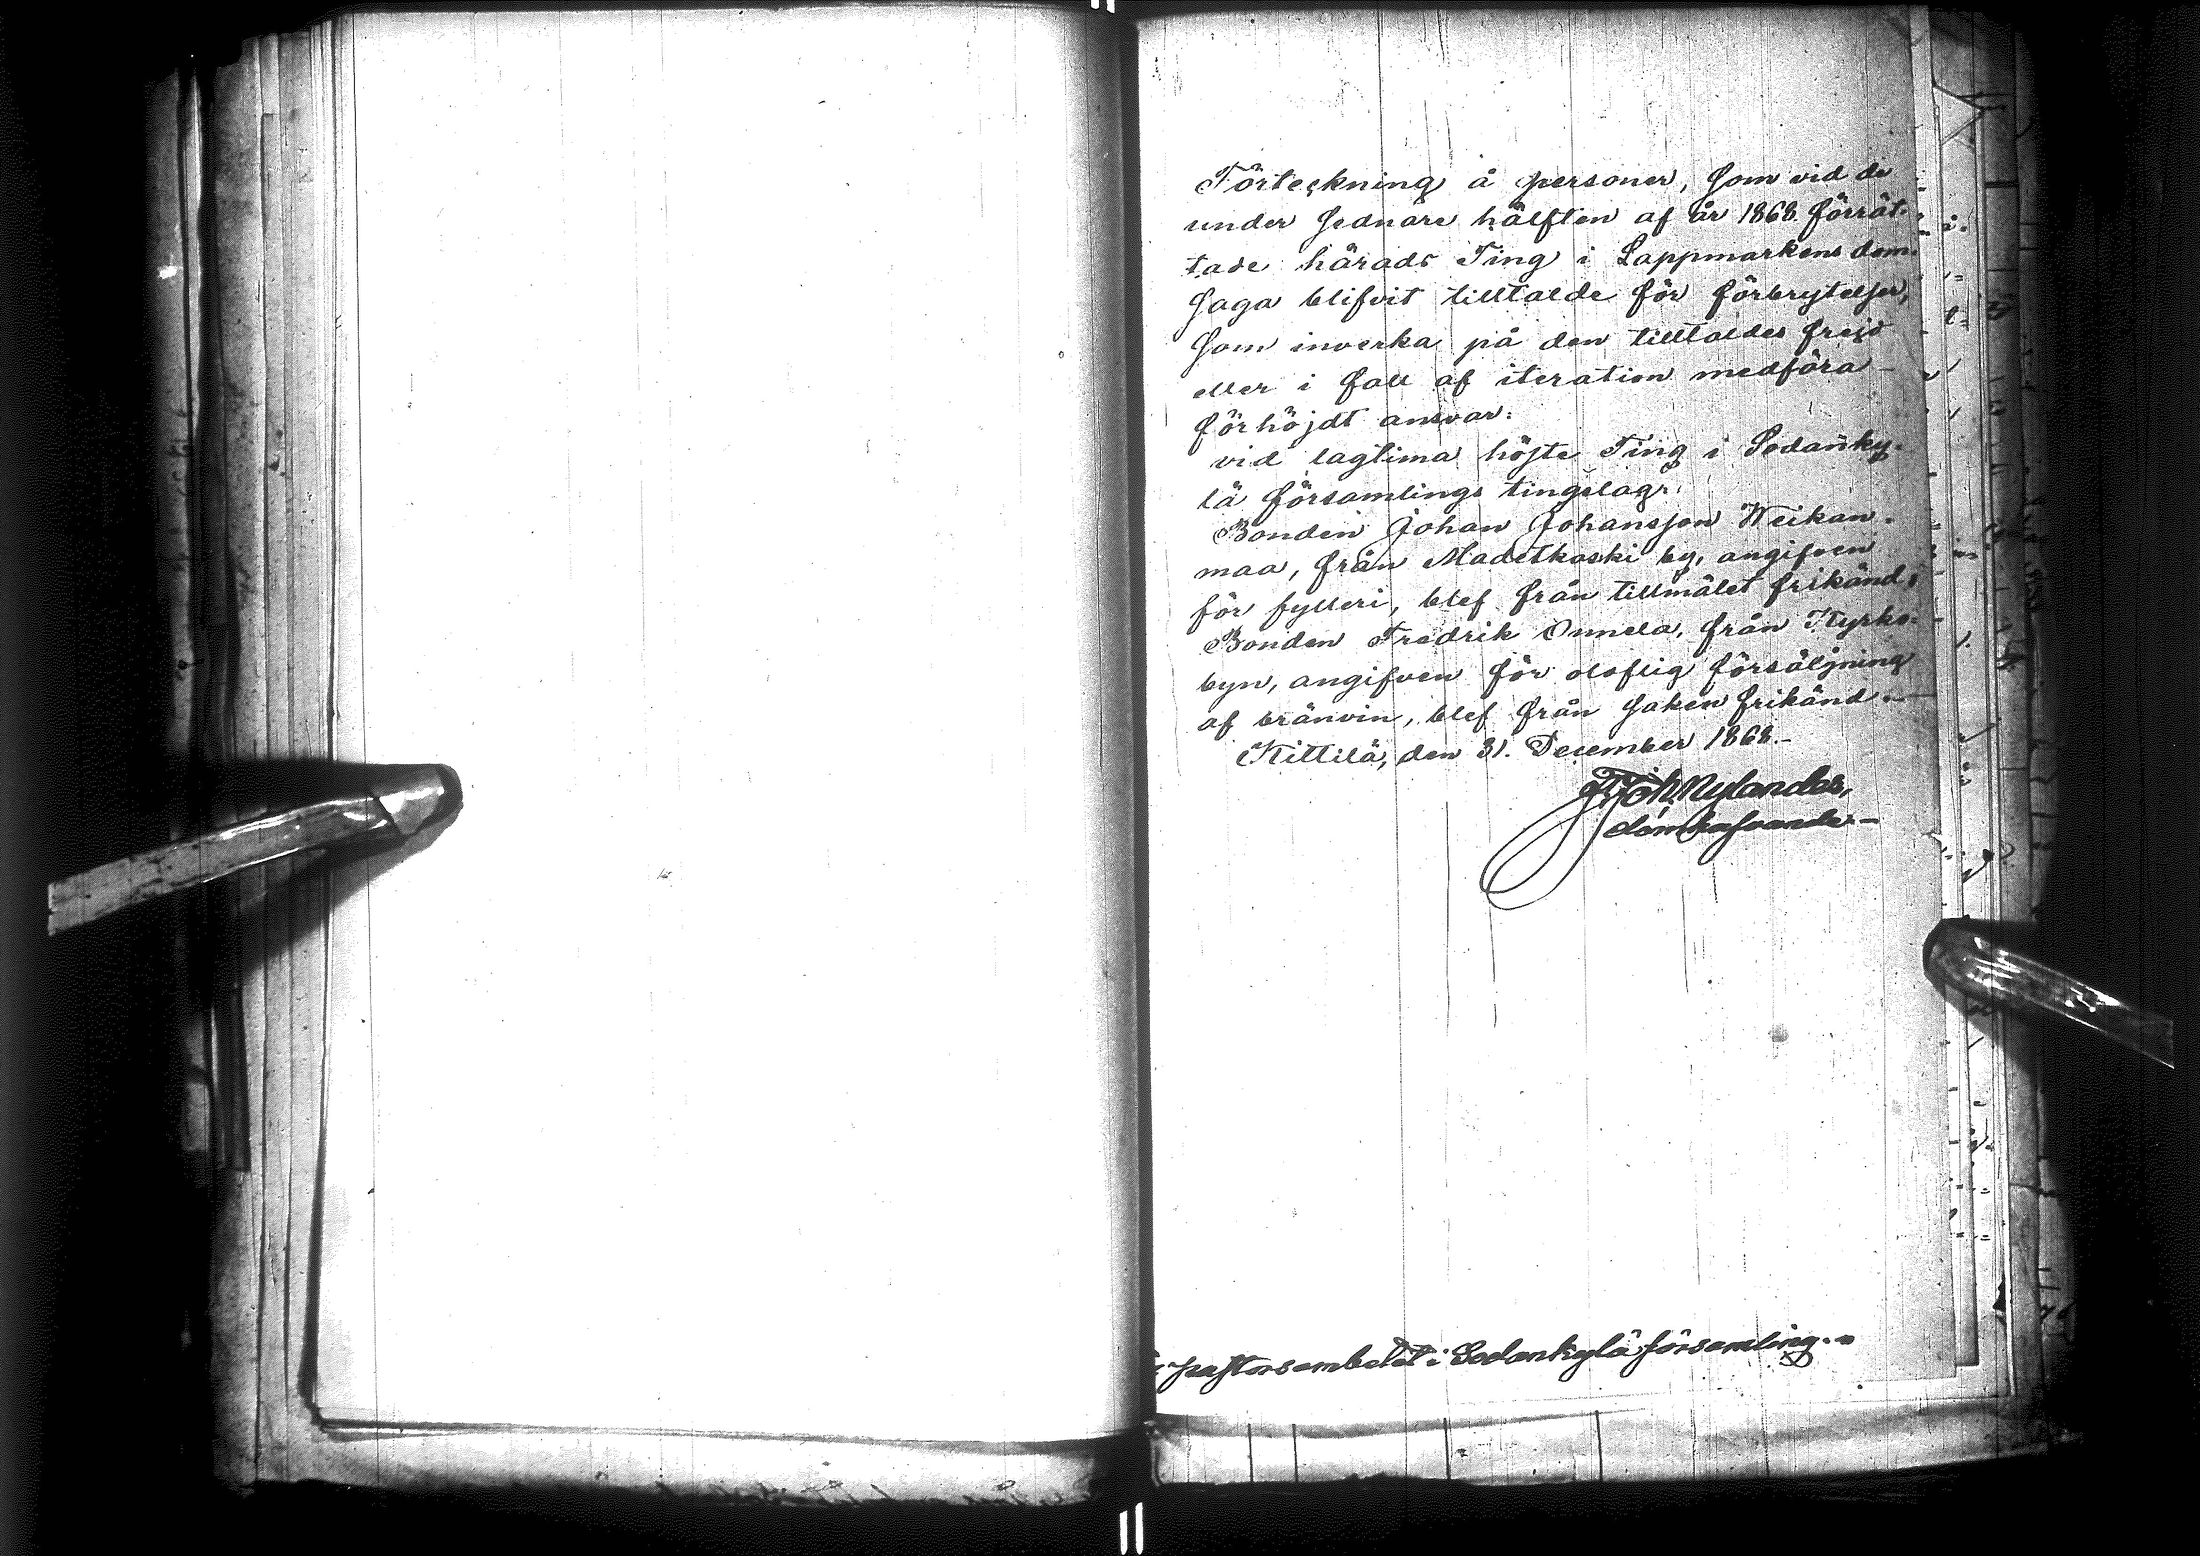 Förteckning å personer, som vid de
under sednare hälften af år 1868 förrät-
tade härads Ting i Lappmarkens dom-
saga blifvit tilltalde för förbrytelser,
som inverka på den tilltaldes frejd
eller i fall af iteration medföra
förhöjdt ansvar:
vid lagtima höste Ting i Sodanky-
lä församlings tingslag:
Bonden Johan Johansson Weikan-
maa, från Madetkoski by, angifven
för fylleri, blef från tillmälet frikänd;
Bonden Fredrik Onnela, från Kyrko-
byn, angifven för oloflig försäljning
af bränvin, blef från saken frikänd.—
Kittilä, den 31. December 1868.—
Nylander,
domhafvande.—
pastorsembetet i Sodankylä församling.